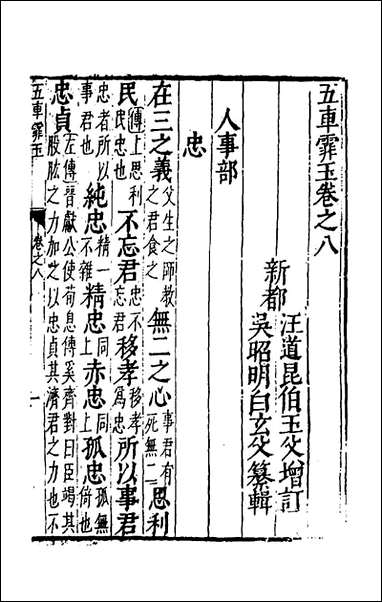 五車霏玉卷之八
新都
汪道昆伯玉父增訂
吳昭明白玄父纂輯
人事部
忠
在三之義父生之師教之君食之無二之心事君有死無二思利
民傳上思利民忠也不忘君忠不忘君移孝移孝爲忠所以事君
忠者所以事君也純忠精一不雜精忠同上赤忠同上孤忠孤無倚也
忠貞左傳晉獻公使荀息傳奚齊對曰臣竭其股肱之力加之以忠貞其濟君之力也不
五車霏玉 卷之八 一